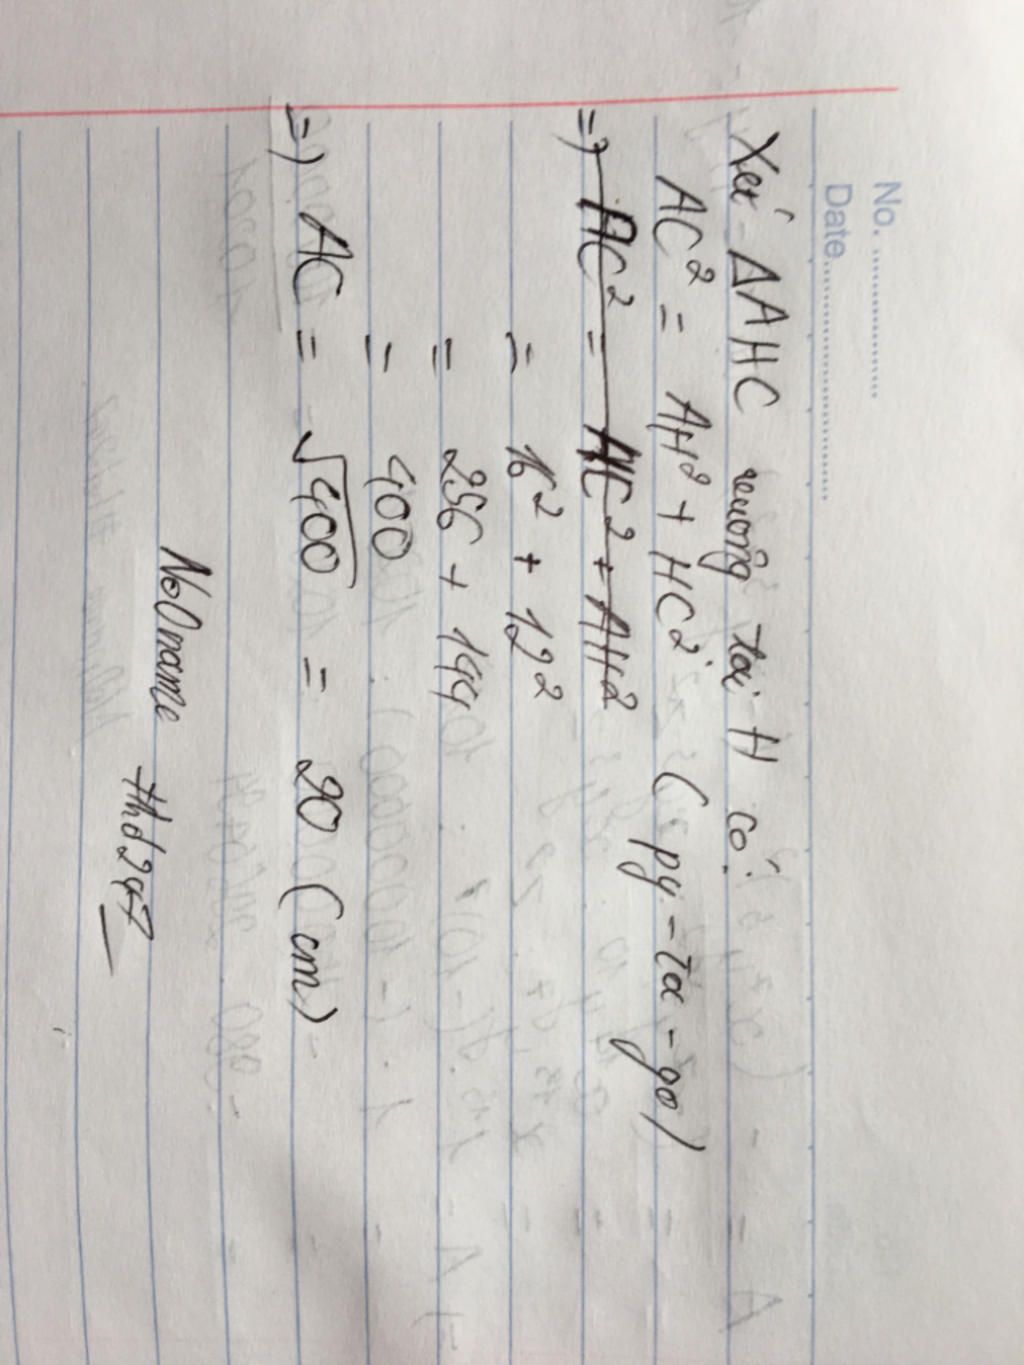 No. ..................
Date..............................
Xét ΔAHC vuông tại H có:
AC² = AH² + HC² (py-ta-go)
=> AC² = HC² + AH²
= 16² + 12²
= 256 + 144
= 400
=> AC = √400 = 20 (cm)
NoOname
thd247